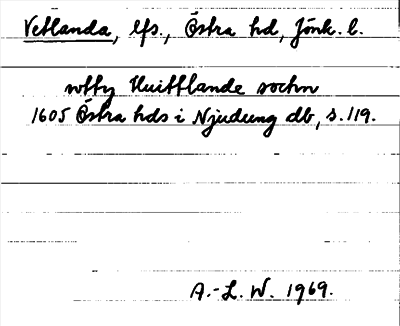 Vetlanda, lfs., Östra hd, Jönk. l.
wtty Huittlande sochn
1605 Östra hds i Njudung db, s. 119.
A.-L. W. 1969.